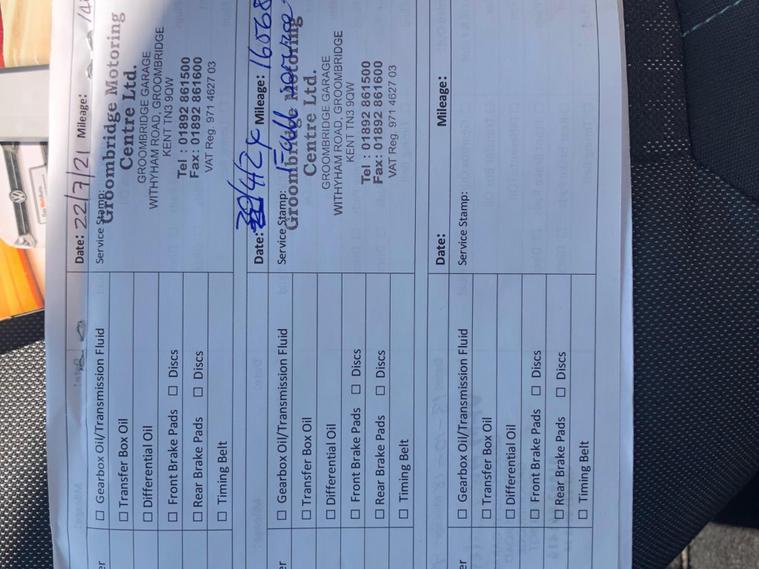 Date: 22/7/21 Mileage:
Service Stamp:
Groombridge Motoring
Centre Ltd.
GROOMBRIDGE GARAGE
WITHYHAM ROAD, GROOMBRIDGE
KENT TN3 9QW
Tel : 01892 861500
Fax: 01892 861600
VAT Reg. 971 4627 03
er
☐ Gearbox Oil/Transmission Fluid
☐ Transfer Box Oil
☐ Differential Oil
☐ Front Brake Pads ☐ Discs
☐ Rear Brake Pads ☐ Discs
☐ Timing Belt
Date: 30/4/24 Mileage: 16068
Service Stamp: Full service
Groombridge Motoring
Centre Ltd.
GROOMBRIDGE GARAGE
WITHYHAM ROAD, GROOMBRIDGE
KENT TN3 9QW
Tel : 01892 861500
Fax: 01892 861600
VAT Reg. 971 4627 03
er
☐ Gearbox Oil/Transmission Fluid
☐ Transfer Box Oil
☐ Differential Oil
☐ Front Brake Pads ☐ Discs
☐ Rear Brake Pads ☐ Discs
☐ Timing Belt
Date: Mileage:
Service Stamp:
er
☐ Gearbox Oil/Transmission Fluid
☐ Transfer Box Oil
☐ Differential Oil
☐ Front Brake Pads ☐ Discs
☐ Rear Brake Pads ☐ Discs
☐ Timing Belt